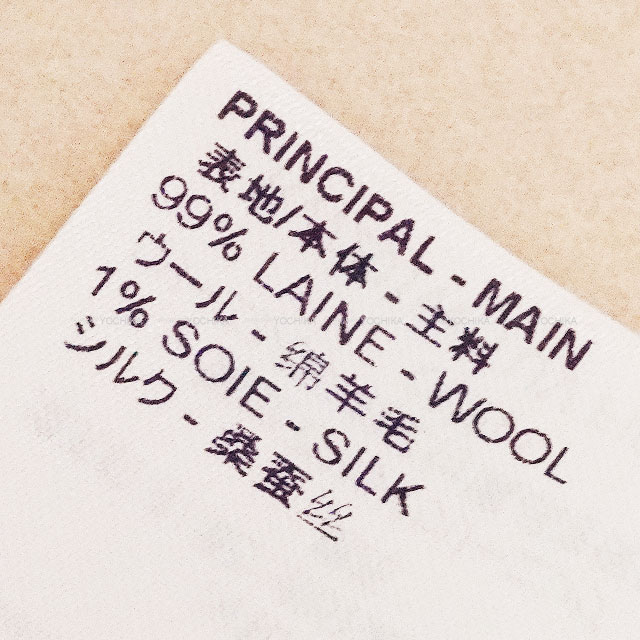 PRINCIPAL - MAIN
表地/本体 - 主料
99% LAINE - WOOL
ウール - 绵羊毛
1% SOIE - SILK
シルク - 桑蚕丝